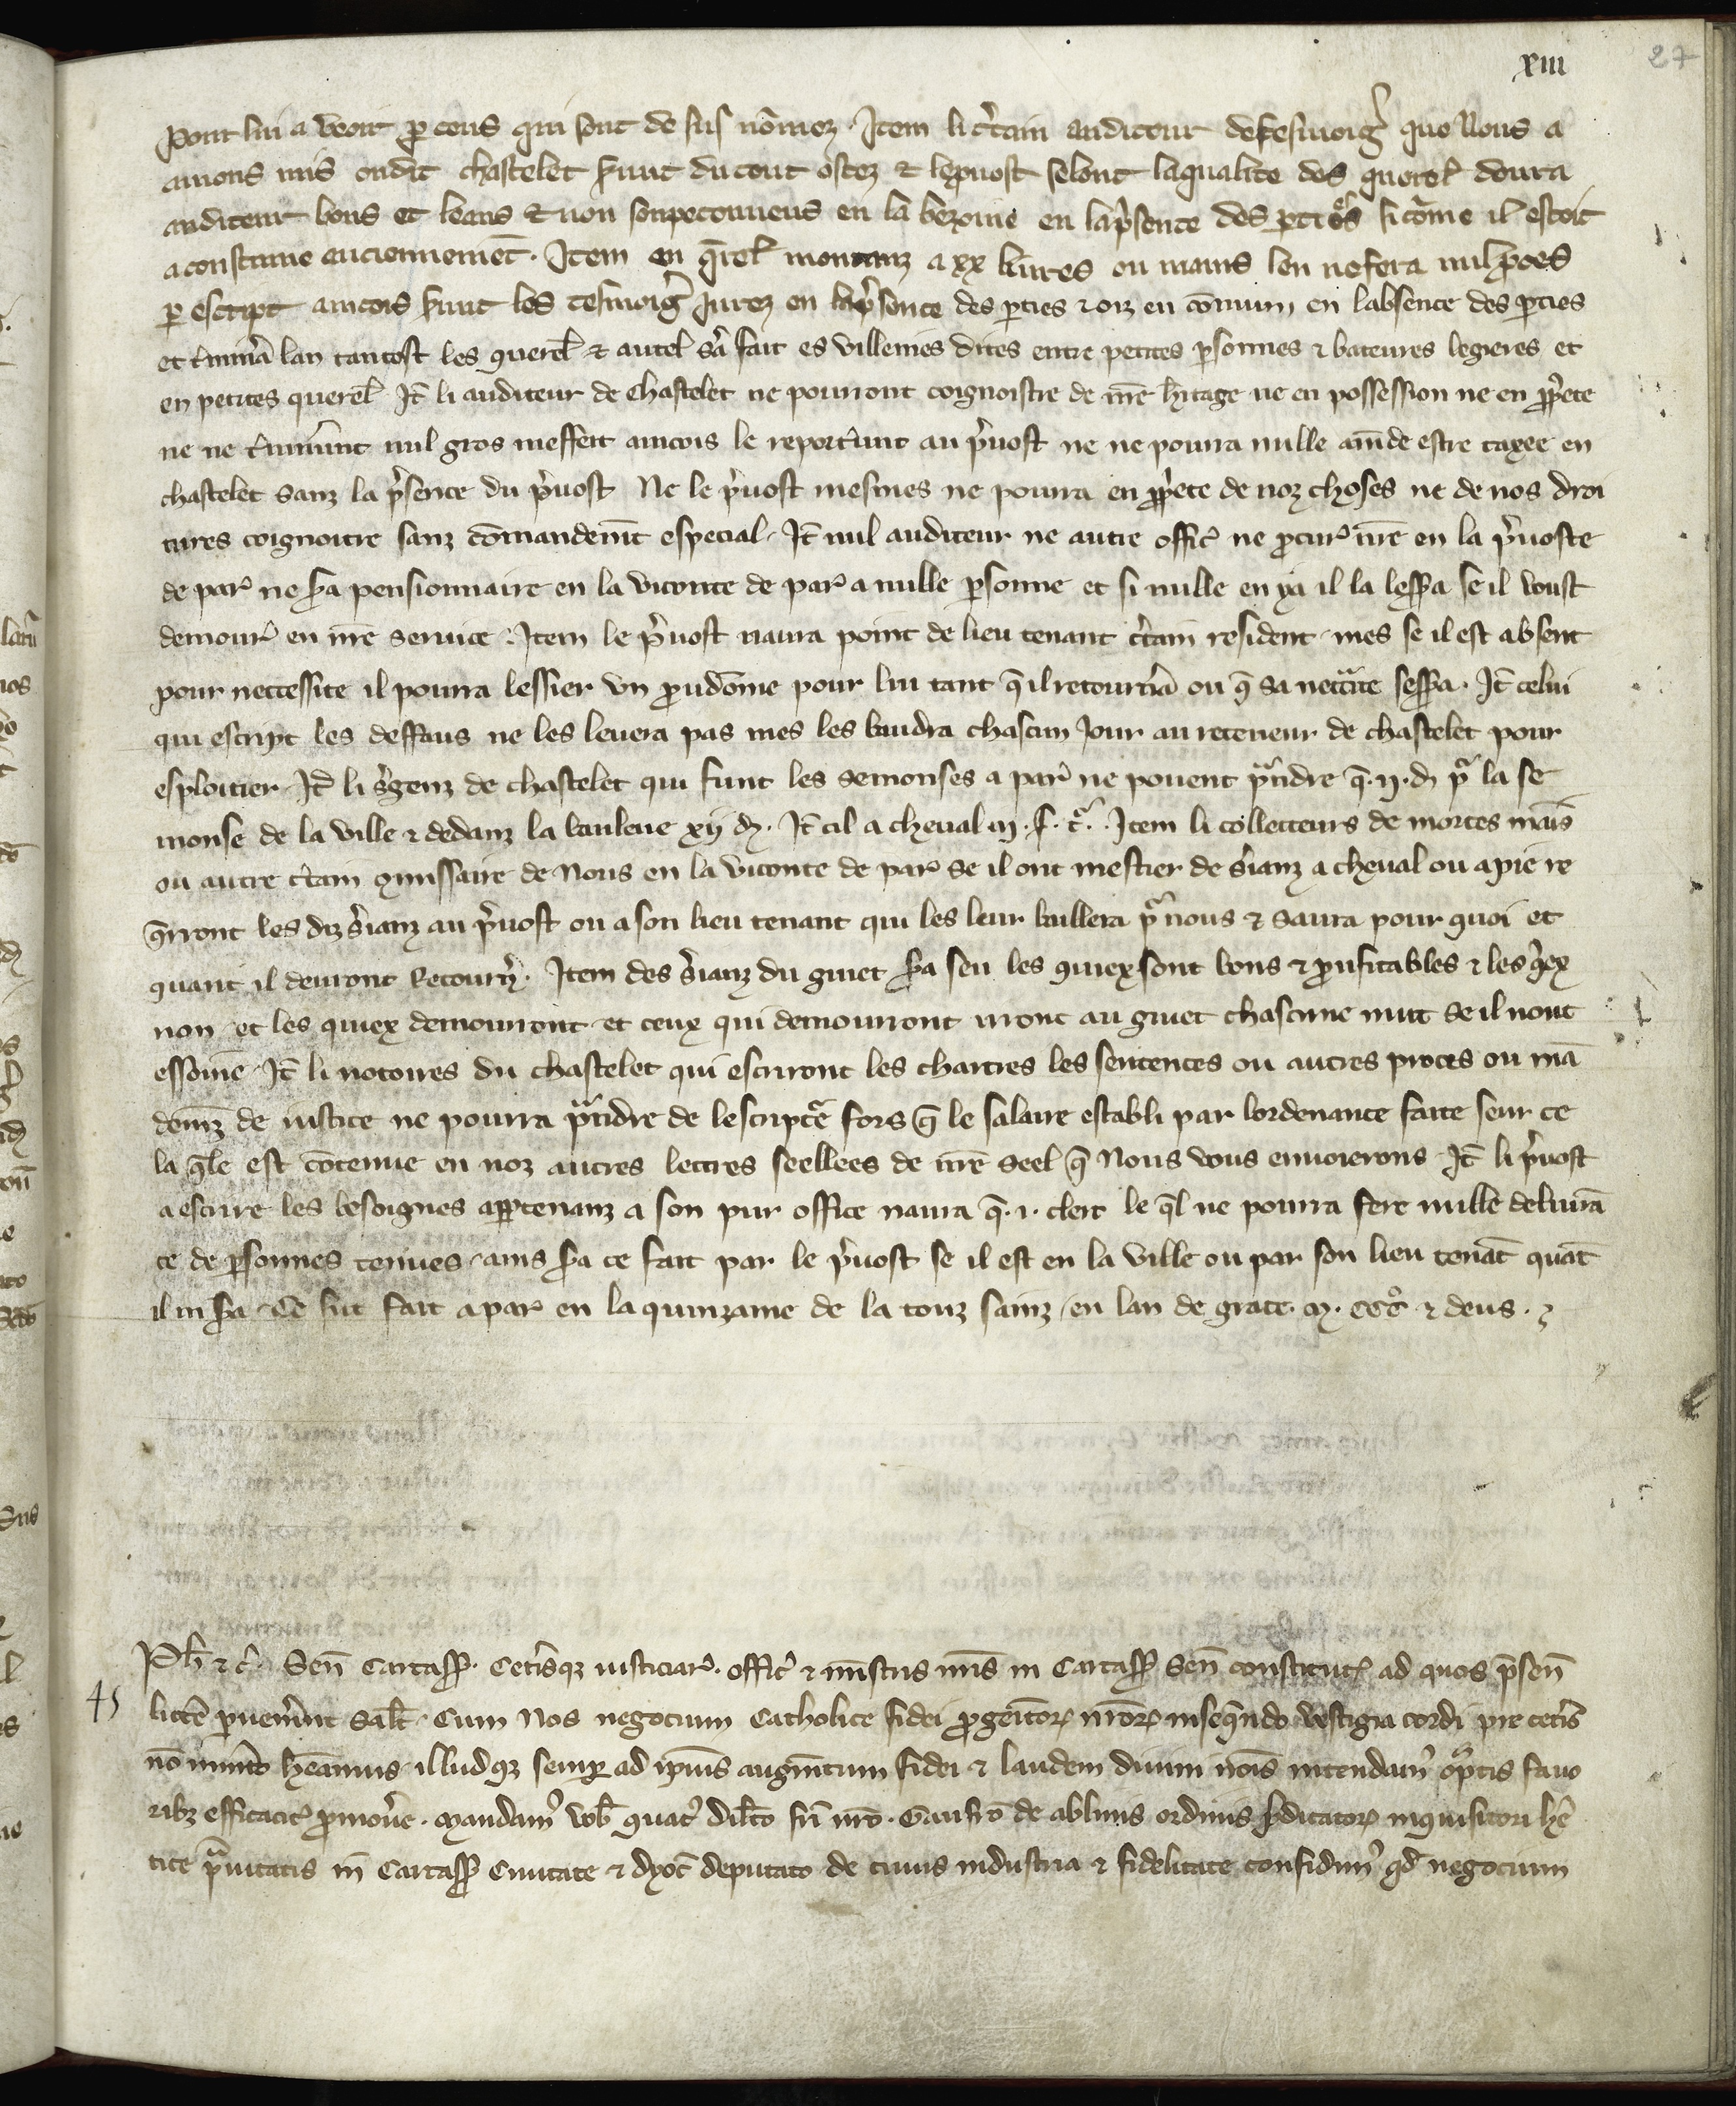 xiii
27
pour lui a veoir ꝑ ceus qui sont de sus nōmez. Item li c̾tain auditour de tesmoigᷤ que Nous a
auions mis oudit chastelet sunt du tout ostez & lepuost selont laqualite des querel̃ doura
auditeur bons et leaus & non soupeconneus en la bezoine en lap̾sence des ꝑties sicōme il estoit
acoustume anciennemēt. Item en q̄rel̃ montanz a xx liures ou mains len nefera nul ꝓces
ꝑ escript aincois sunt les tesmoigᷤ Jurez en lap̾sence des ꝑties & oiz en cōmun en labsence des ꝑties
et t̾minā lan tantost les querel̃ & autel s̾a fait es villenies dites entre petites ꝑsonnes & bateures legieres et
en petites querel̃ It̄ li auditeur de chastelet ne pourront coignoistre de nr̄e h̾itage ne en possession ne en ꝓp̾ete
ne ne t̾minr̄unt nul gros meffeit aincois le report̾unt au p̾uost ne ne pourra nulle am̄de estre taxee en
chastelet sanz la p̾sence du p̾uost Ne le p̾uost mesmes ne pourra en ꝓp̾ete de noz choses ne de nos droi
tures coignoitre sanz cōmandemēt especial. It̄ nul auditeur ne autre offic̾ ne ꝓcur̾ nr̄e en la p̾uoste
de par̾ ne s̾a pensionnaire en la viconte de par̾ a nulle ꝑsonne et si nulle en ya il la less̾a se il voust
demour̾ en nr̄e seruice. Item le p̾uost naura point de lieu tenant c̾tain resident mes se il est absent
pour neccessite il pourra lessier vn ꝓudōme pour lui tant q̄ il retourn̾a ou q̄ sa necc̾ite sess̾a. It̄ celui
qui escript les deffaus ne les leuera pas mes les baudra chascun Jour au receueur de chastelet pour
esploitier It̄ li s̾genz de chastelet qui funt les semonses a par̾ ne pouent p̾ndre q̄ .ij. d̾ pᷓ la se
monse de la ville & dedanz la banleue xij d̾. It̄ cil a cheual iij. s. t̾. Item li collecteurs de mortes mains
ou autre c̾tain ꝯmissaire de Nous en la viconte de par̾ se il ont mestier de s̾ianz a cheual ou apie re
q̄rront les diz s̾ianz au p̾uost ou a son lieu tenant qui les leur baillera pᷓ nous & saura pour quoi et
quant il deuront Retourn̾. Item des s̾ianz du guet s̾a seu les quiex sont bons & ꝓufitables & les q̾ex
non et les quiex demourront et ceux qui demourront iront au guet chascune nuit se il nont
essoine It̄ li notoires du chastelet qui escriront les chartres les sentences ou autres proces ou mā
demz de iustice ne pourra p̾ndre de lescriptᷓe fors q̄ le salaire establi par lordenance faite seur ce
la q̄le est cōtenue en noz autres lettres seellees de nr̄e seel q̄ Nous vous enuoierons It̄ li p̾uost
a escrire les besoignes apꝑtenanz a son pur office naura q̄ .i. clerc le q̄l ne pourra fere nulle deliurā
ce de ꝑsonnes tenues ains s̾a ce fait par le p̾uost se il est en la ville ou par son lieu tenāt quāt
il ni s̾a Ce fut fait a par̾ en la quinzaine de la touz sainz en lan de grace. m. CCC° & deus.
45
Ph̄ & c̾. Sen̄ Carcass̾. Cet̾isq; iusticiar̾. offic̾ & mīstris nr̄is in Carcass̾ Sen̄ constitut̾ ad quos p̄sen̄
litt̾e ꝑuen̾int Sal̄t. Cum Nos negocium Catholice fidei ꝓgenitor̾ nr̄or̾ inseq̄ndo vestigia cordi pre cet̾is
nō inm̾ito h̄eamus illudq; semꝑ ad ip̄ius augm̄tum fidei & laudem diuini nōis intendam̾ opᷓtis fauo
rib; efficacit̾ ꝓmou̾e. Mandam̾ vob̄ quat̾ dil̄to fr̄i nr̄o. Gaufr̄o de ablusis ordinis p̾dicator̾ inquisitori h̾e
tice pᷓuitatis in Carcass̾ Ciuitate & dyoc̾ deputato de cuius industria & fidelitate confidim̾ qd̾ negocium